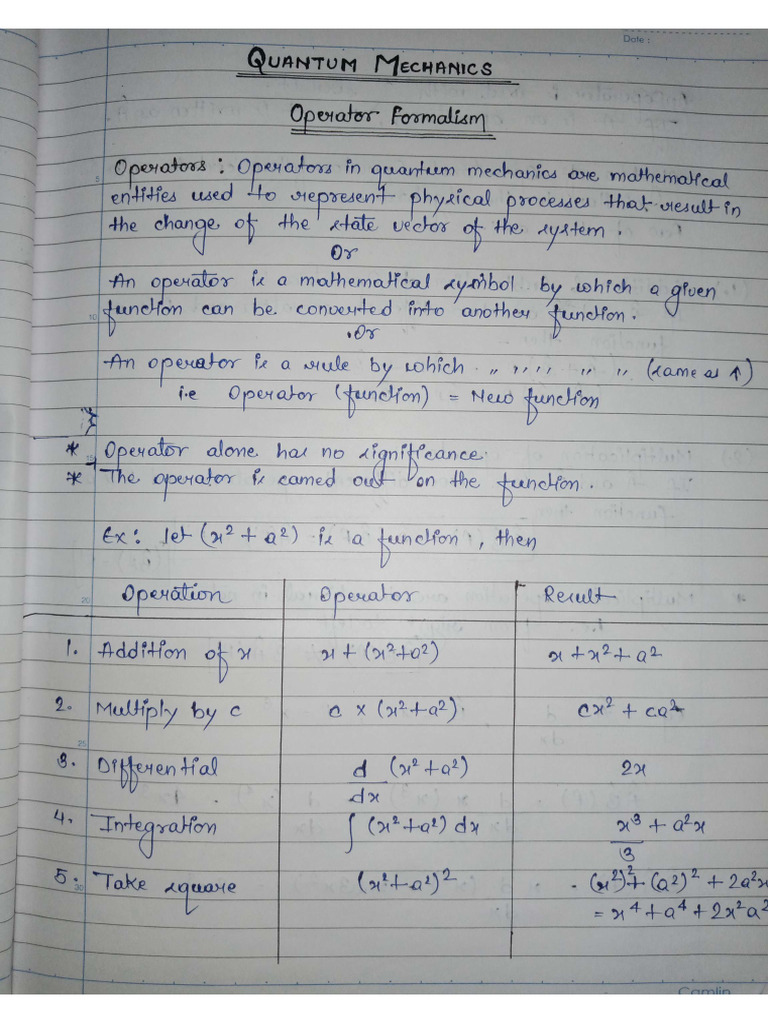 Date :
QUANTUM MECHANICS
Operator Formalism
Operators : Operators in quantum mechanics are mathematical
entities used to represent physical processes that result in
the change of the state vector of the system.
Or
An operator is a mathematical symbol by which a given
function can be converted into another function.
Or
An operator is a rule by which " " " " " " (same as ↑)
i.e Operator (function) = New function
* Operator alone has no significance.
* The operator is carried out on the function.
Ex: let (x² + a²) is a function, then
Operation Operator Result
1. Addition of x x + (x²+a²) x + x² + a²
2. Multiply by c c × (x²+a²) cx² + ca²
3. Differential d/dx (x²+a²) 2x
4. Integration ∫ (x²+a²) dx x³/3 + a²x
5. Take square (x²+a²)² (x²)²+ (a²)² + 2a²x
= x⁴ + a⁴ + 2x²a²
Camlin